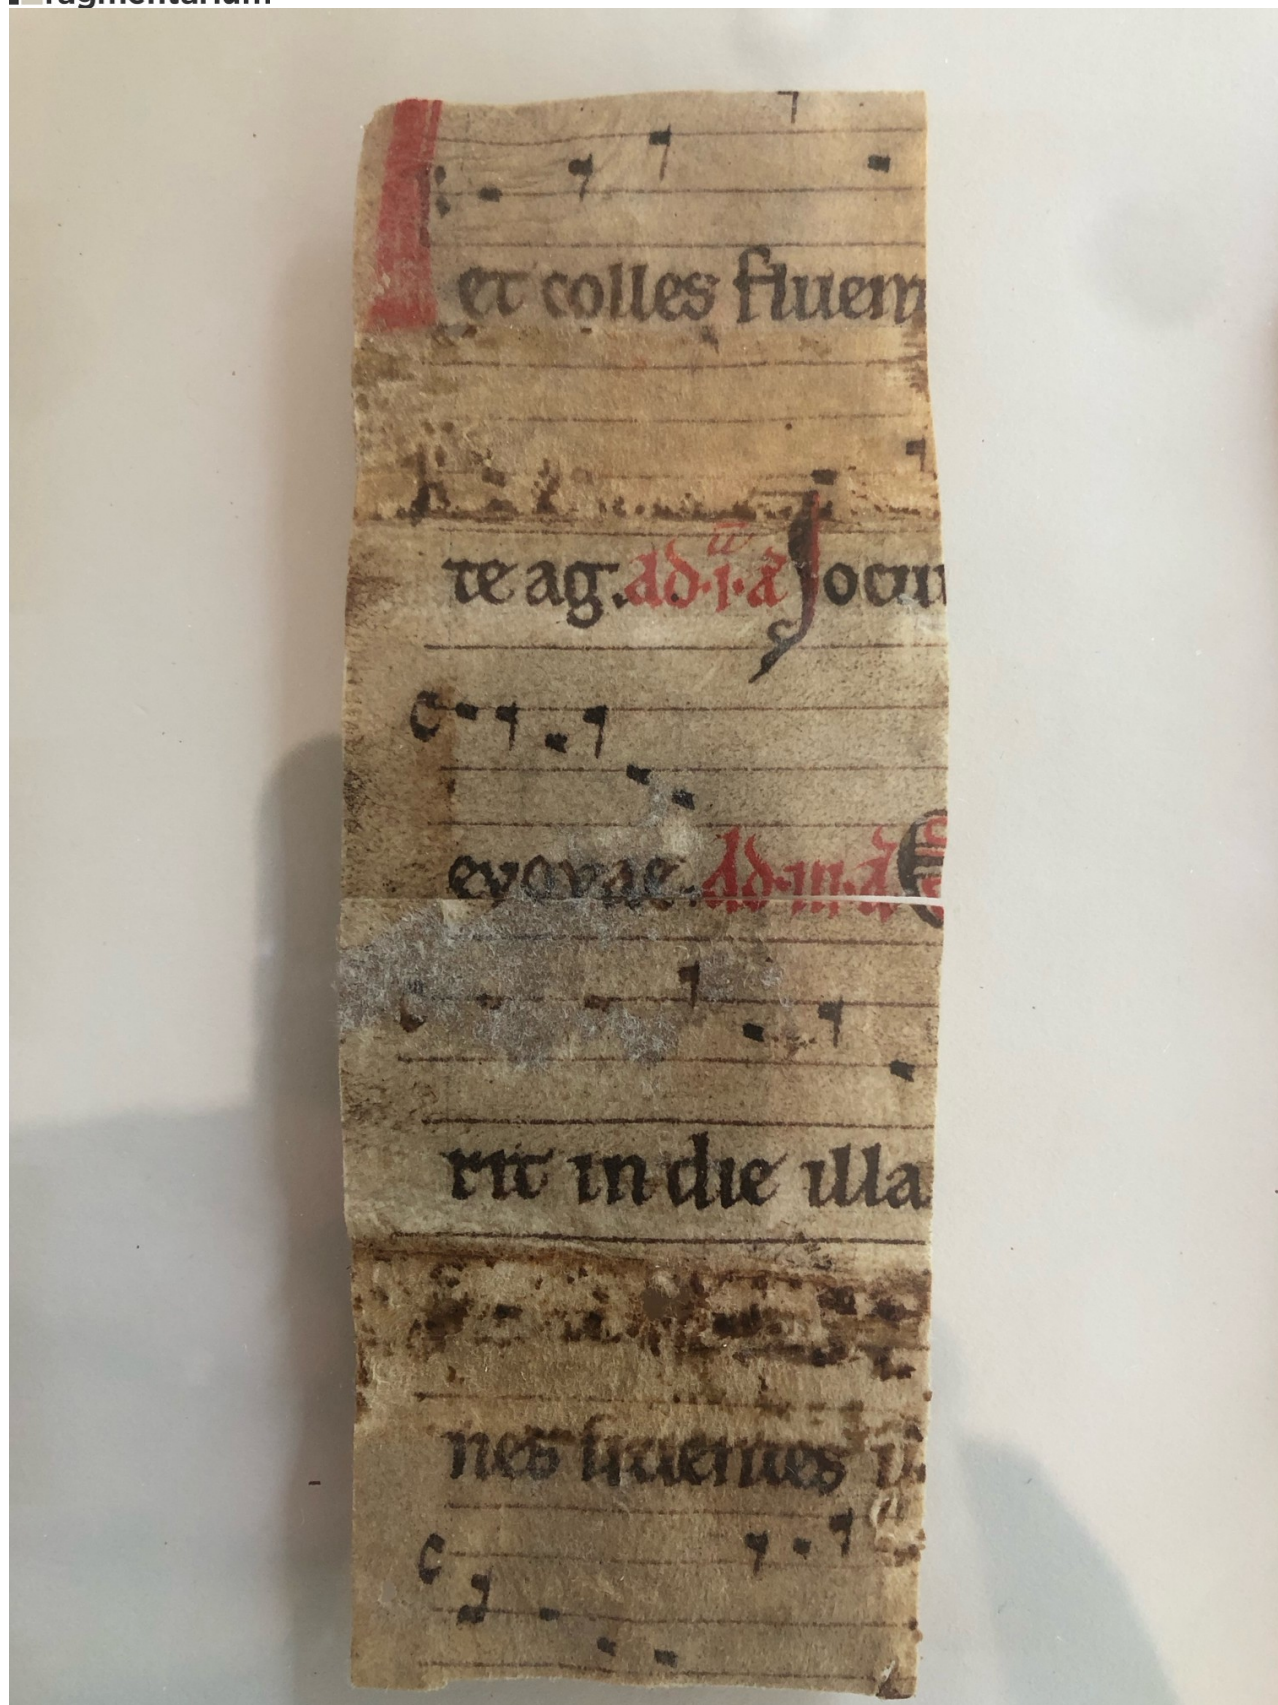 ragmentarium
et colles fluen
te ag. ad .i. a Iocu
evovae. ad .iii. a E
rit in die illa
nes sitientes